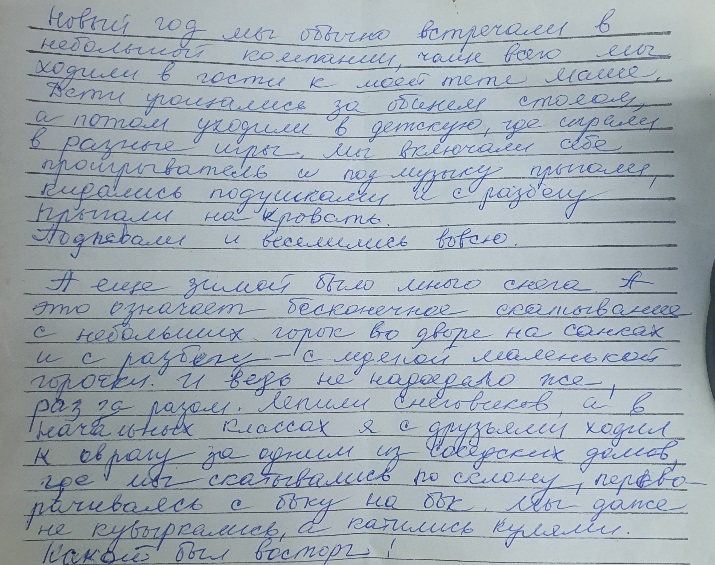 Новый год мы обычно встречали в
небольшой компании, чаще всего мы
ходили в гости к моей тете Маше.
Дети угощались за общим столом,
а потом уходили в детскую, где играли
в разные игры. Мы включали себе
проигрыватель и под музыку прыгали,
кидались подушками и с разбегу
прыгали на кровать.
Подпевали и веселились вовсю.
А еще зимой было много снега. А
это означает бесконечное скатывание
с небольших горок во дворе на санках
и с разбегу - с ледяной маленькой
горочки. И ведь не надоедало же,
раз за разом. Лепили снеговиков, а в
начальных классах я с друзьями ходил
к оврагу за одним из соседских домов,
где мы скатывались по склону, перево-
рачиваясь с боку на бок. Мы даже
не кувыркались, а катились кулями.
Какой был восторг!